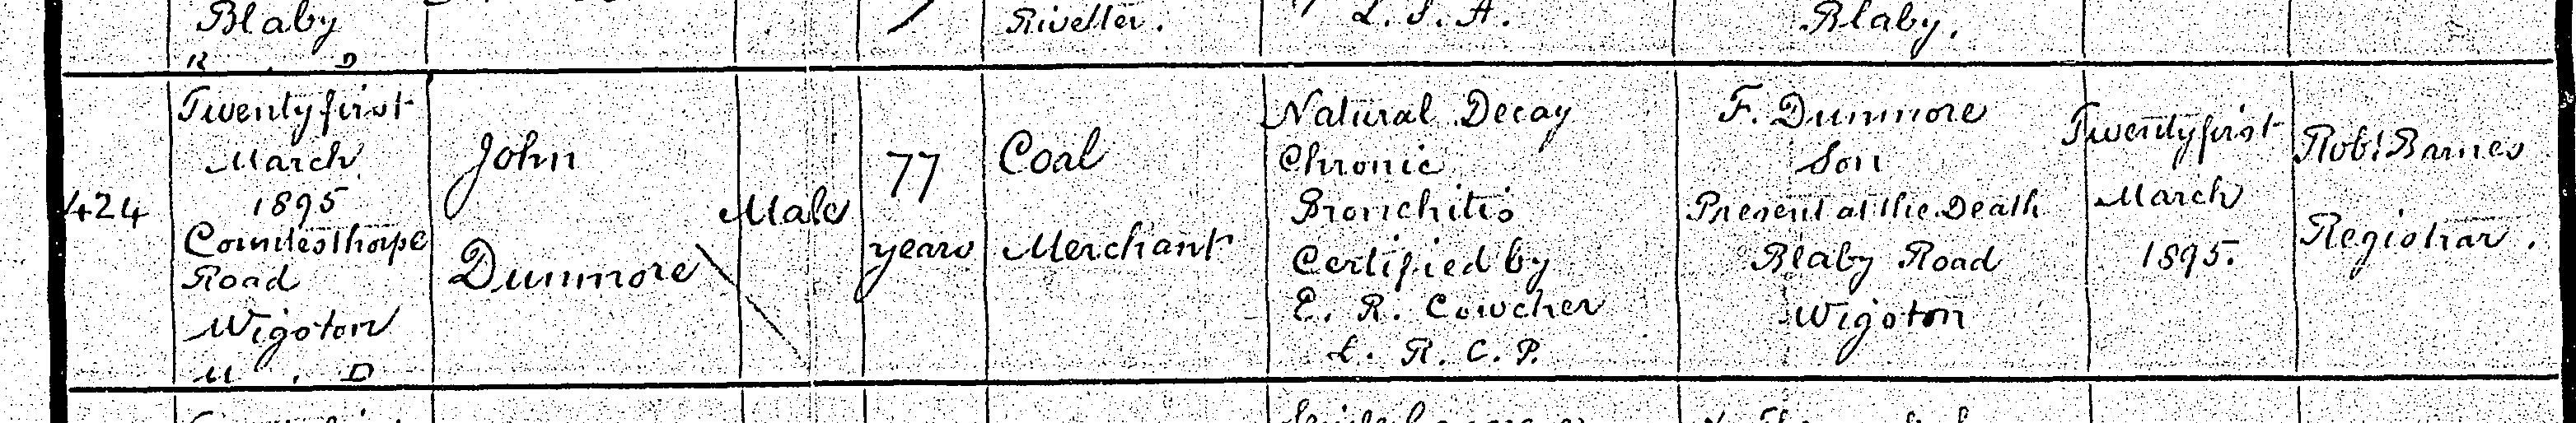 Blaby
Rivetter.
L. S. A.
Blaby.
R. D
424
Twentyfirst
March
1895
Countesthorpe
Road
Wigston
U. D
John
Dunmore
Male
77
years
Coal
Merchant
Natural Decay
Chronic
Bronchitis
Certified by
E. R. Cowcher
L. R. C. P.
F. Dunmore
Son
Present at the Death
Blaby Road
Wigston
Twentyfirst
March
1895.
Robt Barnes
Registrar.